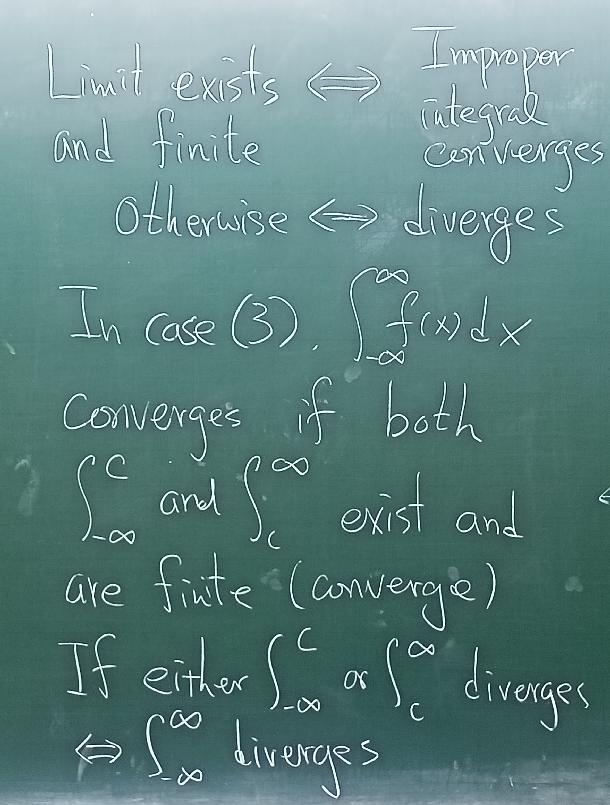 Limit exists ⟺ Impropor
and finite integral
converges
Otherwise ⟺ diverges
In case (3), ∫_{-∞}^{∞} f(x) dx
converges if both
∫_{-∞}^{c} and ∫_{c}^{∞} exist and
are finite (converge)
If either ∫_{-∞}^{c} or ∫_{c}^{∞} diverges
⟺ ∫_{-∞}^{∞} diverges